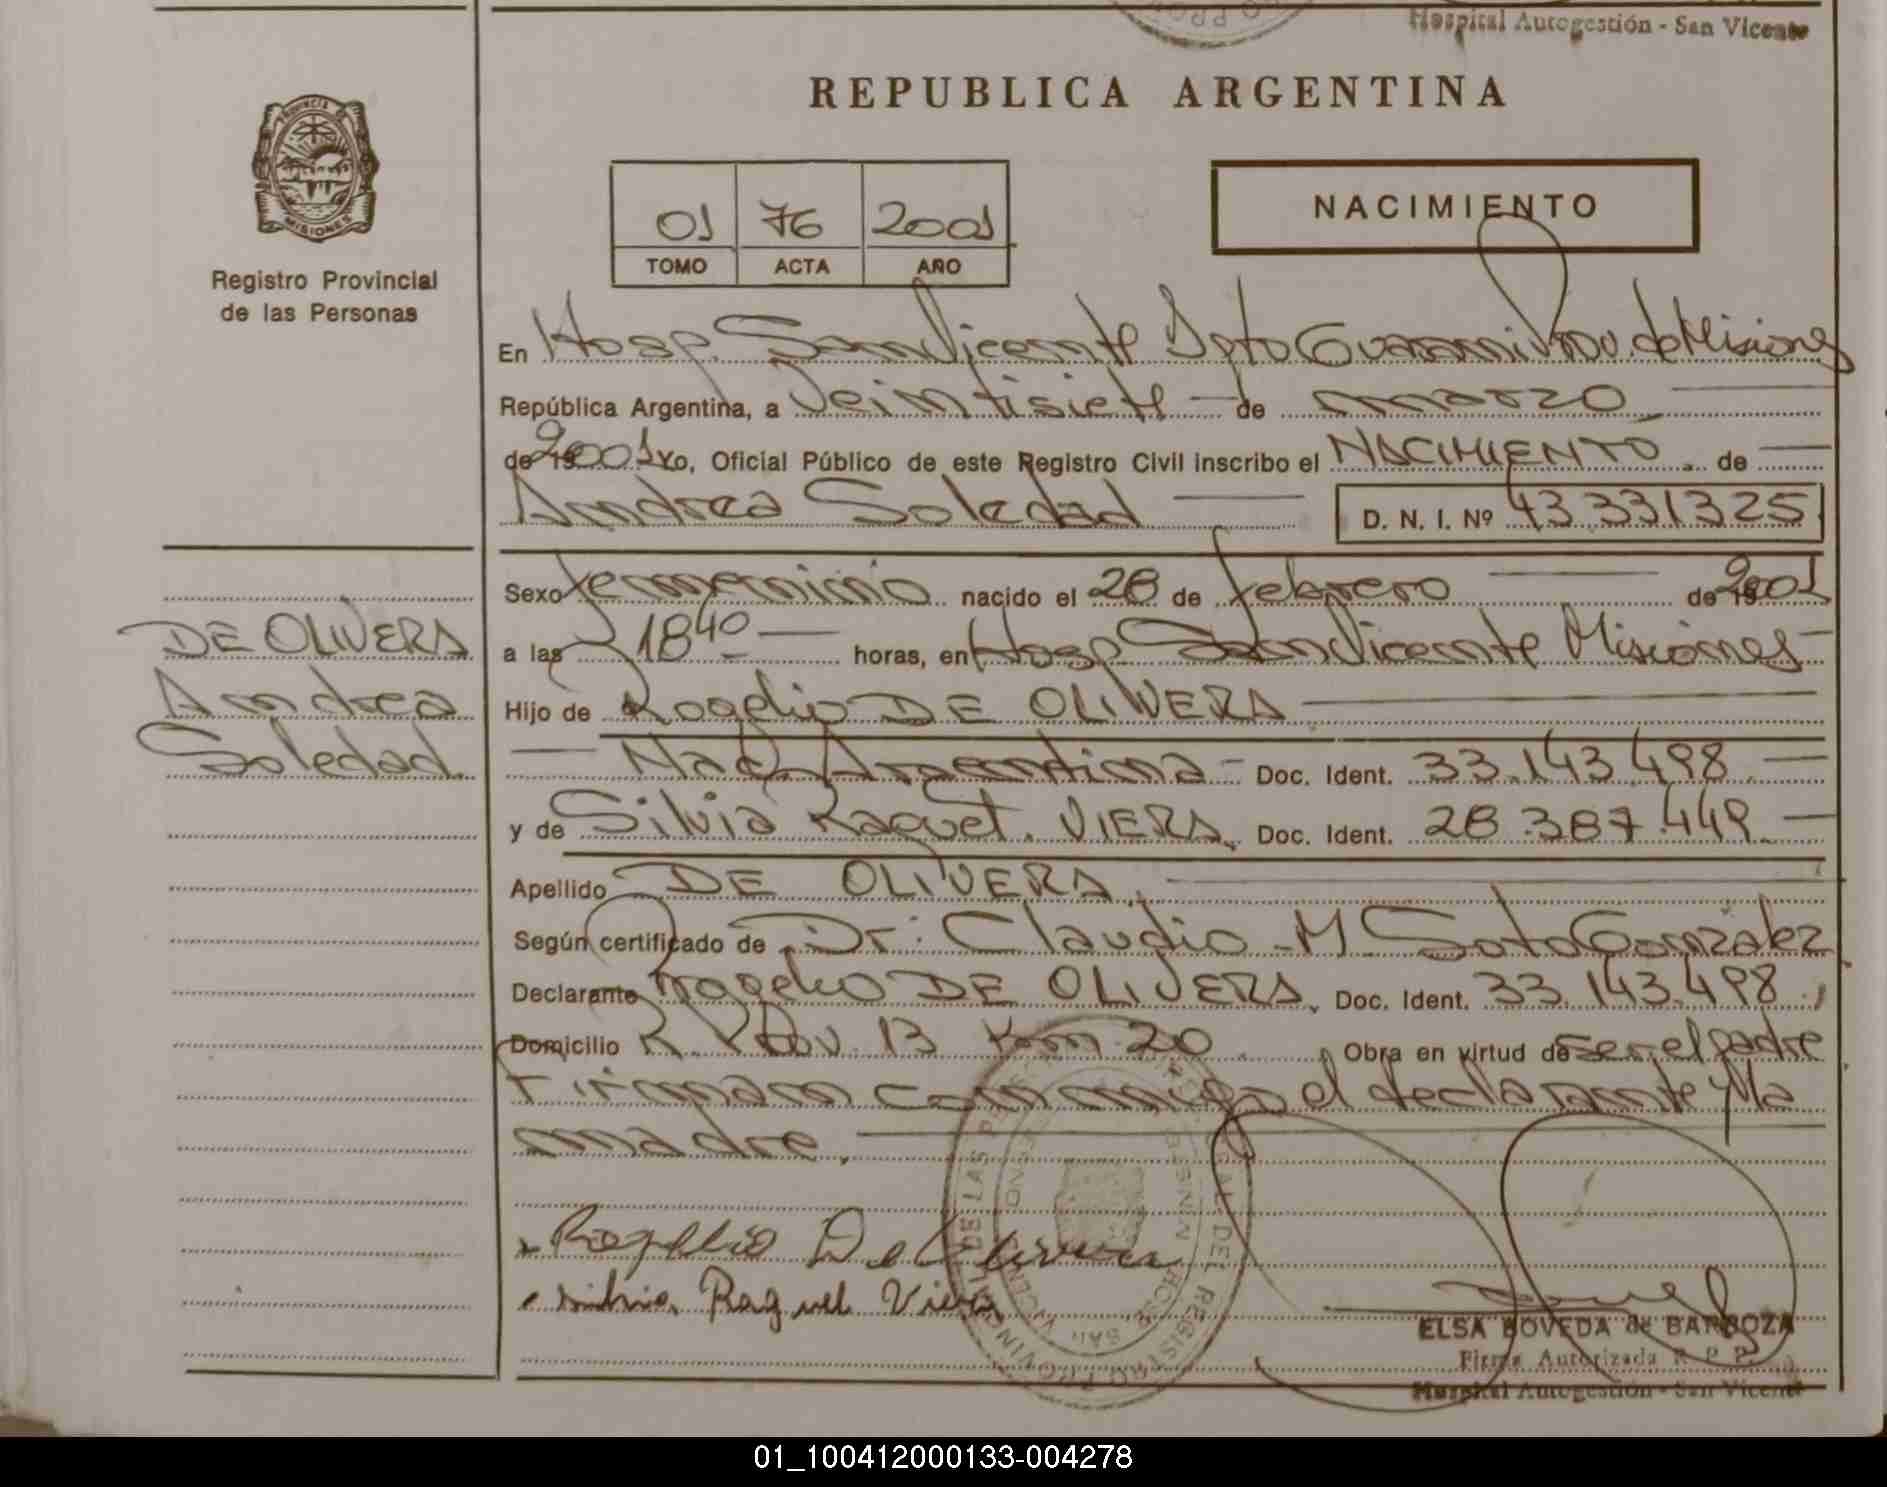 Hospital Autogestión - San Vicente
REPUBLICA ARGENTINA
PROVINCIA DE MISIONES
Registro Provincial
de las Personas
01 76 2001
TOMO ACTA AÑO
NACIMIENTO
En Hosp. San Vicente Dpto Guarani Prov. de Misiones
República Argentina, a Veintisiete de marzo
de 2001 Yo, Oficial Público de este Registro Civil inscribo el NACIMIENTO de
Andrea Soledad D. N. I. Nº 43 331325
Sexo femenino nacido el 28 de febrero de 2001
a las 18 40 horas, en Hosp San Vicente Misiones
Hijo de Rogelio DE OLIVERA
Nac. Argentina - Doc. Ident. 33.143.498
y de Silvia Raquel VIERA Doc. Ident. 28.387.449
Apellido DE OLIVERA
Según certificado de Dr. Claudio M Soto Gonzalez
Declarante Rogelio DE OLIVERA, Doc. Ident. 33.143.498
Domicilio R. Prov. 13 Km 20 Obra en virtud de ser el padre
Firman conmigo el declarante y la
madre.
DE OLIVERA
Andrea
Soledad
Rogelio De Olivera
Silvia Raquel Viera
ELSA BOVEDA de BARBOZA
Firma Autorizada R. P. P.
Hospital Autogestión - San Vicente
01_100412000133-004278